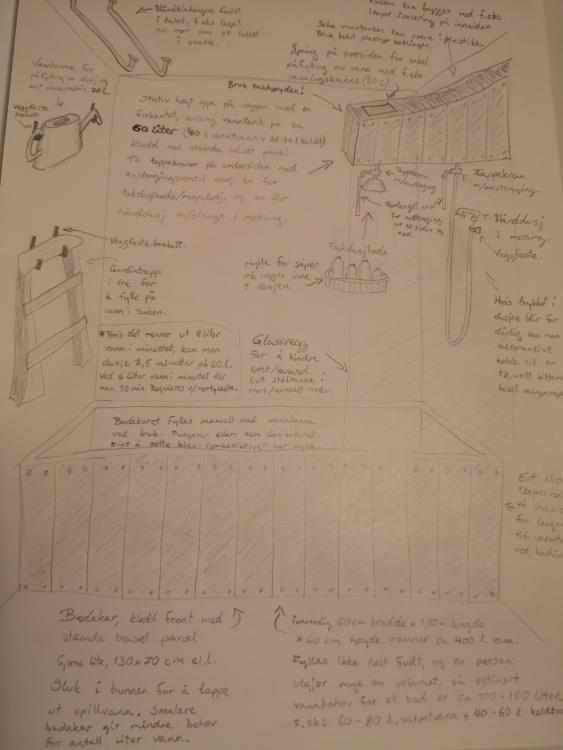 Håndklehengere festet
i taket, f.eks laget
av rør som er lakket
i svart.
Kassen kan bygges med f.eks
isopor-isolering på innsiden.
Selve vanntanken kan være i plastikk.
Åpning på oversiden for enkel
påfylling av vann med f.eks
vanningskanne (20 L)
Bruk takhøyden!
Vannkanne for
påfylling av dusj og
evt 20L
Veggfeste
brakett
Stativ høyt oppe på veggen med en
firkantet, avlang vanntank på en
60 liter (40 L varmtvann + 20-30 L kaldt)
kledd med stående beiset panel.
To tappekraner på undersiden med
avstengingsventil over, en for
takdusjhode/regndusj, og en for
hånddusj m/slange i messing.
Tappekran
m/avstenging
Tappekran
m/avstenging.
Forlenget
for
Takdusjhode
Hånddusj
i messing.
Veggfeste.
Veggfeste-brakett.
Gardintrapp
i tre for
å fylle på
vann i tanken.
Hylle for såper
på veggen inne
i dusjen.
Hvis trykket i
dusjen blir for
dårlig kan man
alternativt
koble til en
12 volt
* Hvis det renner ut 8 liter
vann i minuttet, kan man
dusje 7,5 minutter på 60 L.
Ved 6 liter vann i minuttet får
man 10 min. Reguleres
Glassvegg
for å hindre
Evt stålramme i
Badekaret fylles manuelt med vannkanne
ved bruk. Fungerer ellers som dusjkabinett.
Badekar, kledd front med
stående beiset panel
Gjerne lite, 130x70 cm el.l.
Sluk i bunnen for å tappe
ut spillvann. Smalere
badekar gir mindre behov
for antall liter vann.
Innvendig 60cm bredde x 1,20m lengde
x 60 cm høyde rommer ca 400 l vann.
Fylles ikke helt fullt, og en person
utgjør mye av volumet, så estimert
vannbehov for et bad er ca 100-150 liter.
F.eks 60-80 l. varmtvann + 40-60 l. kaldtva